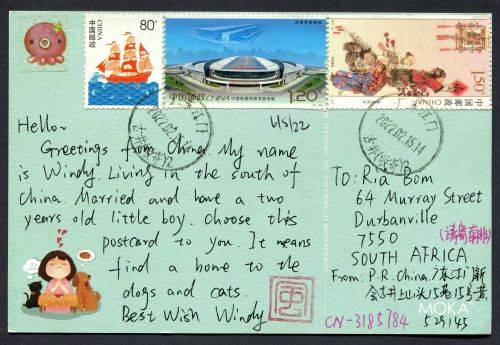 80分
中国邮政
CHINA
中国邮政 CHINA
1.20元
中国邮政 CHINA
1.50元
2022.02.15.14
广东江门
Hello~
Greetings from China. My name
is Windy. Living in the south of
China. Married and have a two
years old little boy. Choose this
postcard to you. It means
find a home to the
dogs and cats.
Best Wish Windy
1/5/22
TO: Ria Bom
64 Murray Street
Durbanville
7550
(请寄南非)
SOUTH AFRICA
From: P.R.China. 广东江门新
会古井
CN-3185784
529145
MOKA